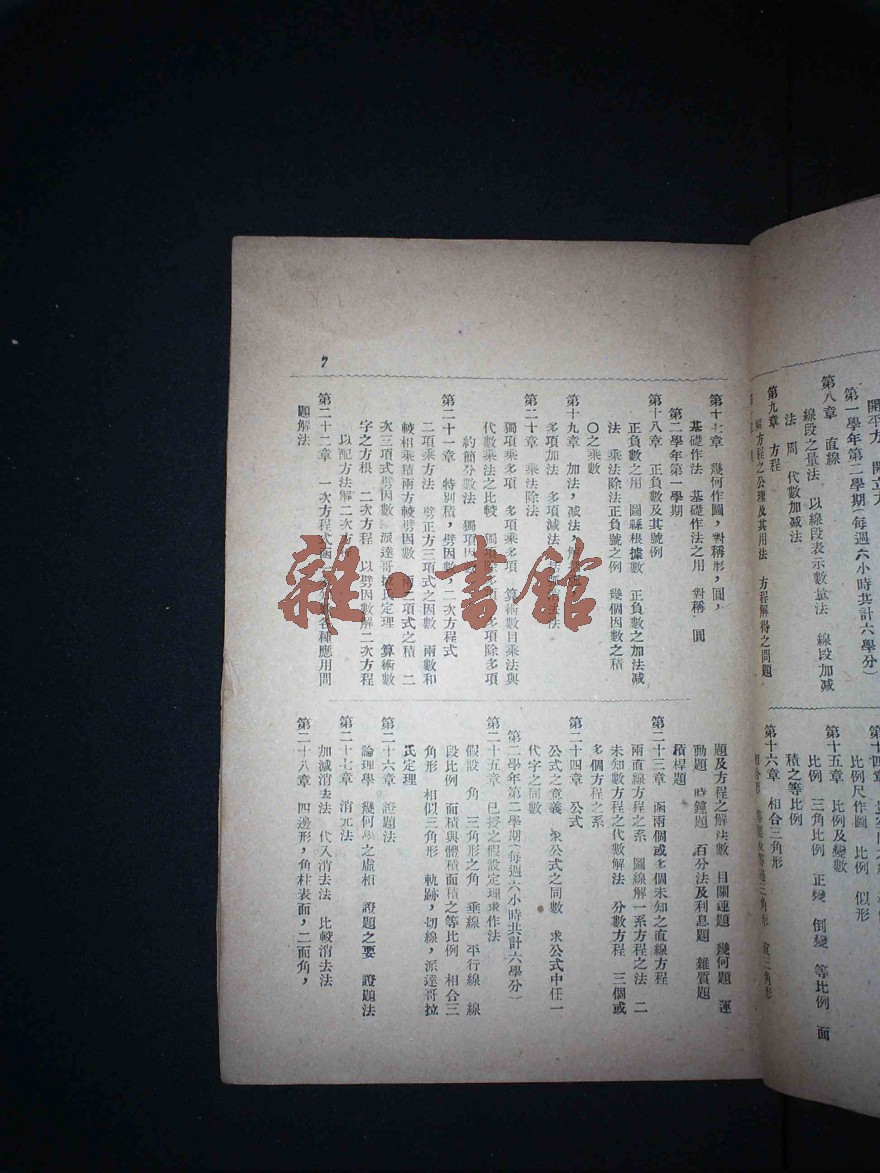 開平方 開立方
第一學年第二學期(每週六小時共計六學分)
第八章 直線
線段之量法 以線段表示數量法 線段加減
法 周 代數加減法
第九章 方程
解方程之公理及其用法 方程解得之問題
比例尺作圖 比例 似形
第十五章 比例及變數
比例 三角比例 正變 倒變 等比例 面
積之等比例
第十六章 相合三角形
7
第十七章 幾何作圖,對稱形,圓,
基礎作法 基礎作法之用 對稱 圓
第二學年第一學期
第十八章 正負數及其號例
正負數之用 圖線根據數 正負數之加法减
法 乘法除法正負號之例 幾個因數之積
〇之乘數
第十九章 加法,减法,
多項加法 多項減法
第二十章 乘法除法
獨項乘多項 多項乘多項 算術數目乘法與
代數乘法之比較 獨項 多項除多項
約簡分數法 獨項因
第二十一章 特別積,劈因數,二次方程式
二項乘方法 劈正方三項式之因數 兩數和
較相乘積兩方較劈因數 兩二項式之積 二
次三項式劈因數 派達哥拉氏定理 算術數
字之方根 二次方程 以劈因數解二次方程
以配方法解二次方
第二十二章 一次方程式 各種應用問
題解法
題及方程之解法數 目關連題 幾何題 運
動題 時鐘題 百分法及利息題 雜質題
槓桿題
第二十三章 函兩個或多個未知之直線方程
兩直線方程之系 圖線解一系方程之法 二
未知數方程之代數解法 分數方程 三個或
多個方程之系
第二十四章 公式
公式之意義 衆公式之同數 求公式中任一
代字之同數
第二學年第二學期(每週六小時共計六學分)
第二十五章 已授之假設定理乘作法
假設 角 三角形之角 垂線 平行線 線
段比例 面積與體積面積之等比例 相合三
角形 相似三角形 軌跡,切線,派達哥拉
氏定理
第二十六章 證題法
論理學 幾何學之虛相 證題之要 證題法
第二十七章 消元法
加減消去法 代入消去法 比較消去法
第二十八章 四邊形,角柱表面,二面角,
雜·書館